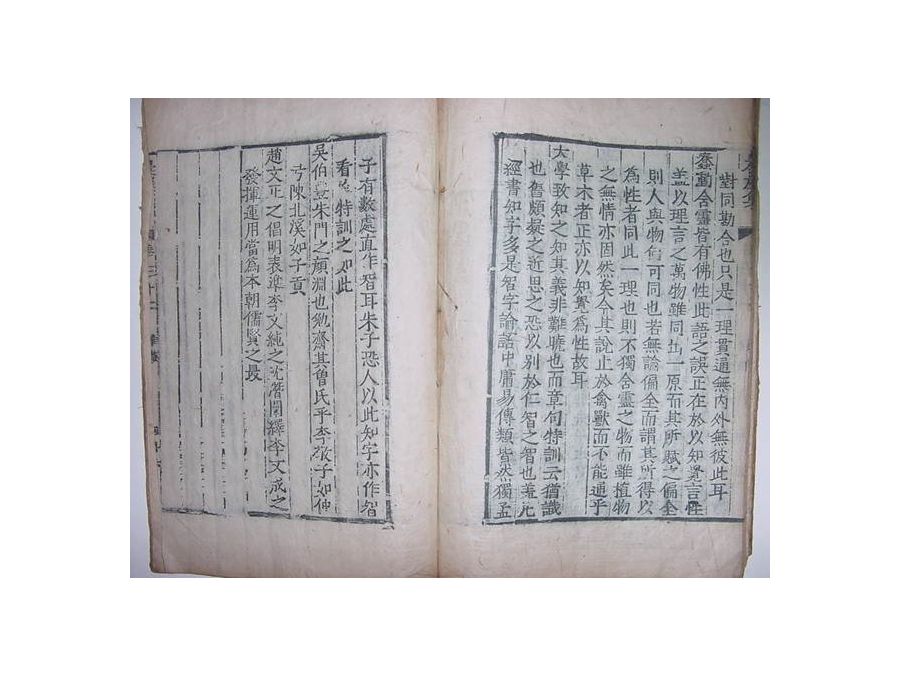 對同勘合也只是一理貫通無內外無彼此耳
蠢動含靈皆有佛性此語之誤正在於以知覺言性
盖以理言之萬物雖同出一原而其所賦之偏全
則人與物何可同也若無論偏全而謂其所得以
為性者同此一理也則不獨含靈之物而雖植物
之無情亦固然矣今其說止於禽獸而不能通乎
草木者正亦以知覺為性故耳
大學致知之知其義非難曉也而章句特訓云猶識
也嘗頗疑之近思之恐以別於仁智之智也盖凡
經書知字多是智字論語中庸易傳類皆然獨孟
子有數處直作智耳朱子恐人以此知字亦作智
看 特訓之如此
吳伯豊朱門之顏淵也勉齋其曾氏乎李敬子如仲
弓陳北溪如子貢
趙文正之倡明表準李文純之沈潛闡繹李文成之
發揮運用當為本朝儒賢之最